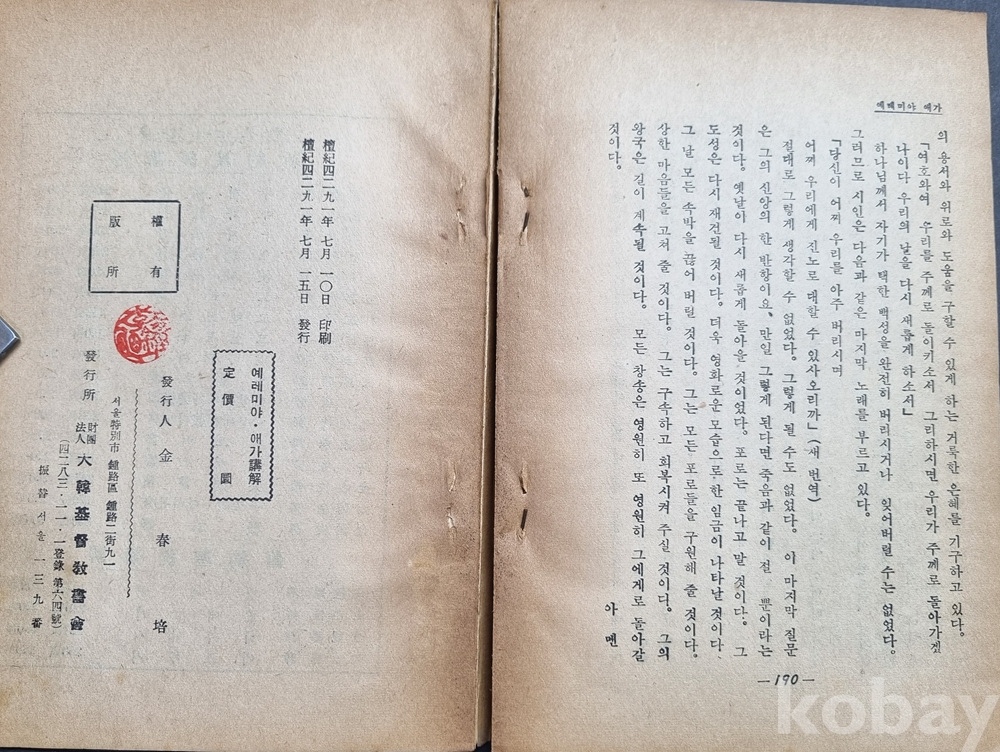 예레미야 애가
의 용서와 위로와 도움을 구할 수 있게 하는 거룩한 은혜를 기구하고 있다.
「여호와여 우리를 주께로 돌이키소서 그리하시면 우리가 주께로 돌아가겠
나이다 우리의 날을 다시 새롭게 하소서」
하나님께서 자기가 택한 백성을 완전히 버리시거나 잊어버릴 수는 없었다.
그러므로 시인은 다음과 같은 마지막 노래를 부르고 있다.
「당신이 어찌 우리를 아주 버리시며
어찌 우리에게 진노로 대할 수 있사오리까」(새 번역)
절대로 그렇게 생각할 수 없었다. 그렇게 될 수도 없었다. 이 마지막 질문
은 그의 신앙의 한 반항이요, 만일 그렇게 된다면 죽음과 같이 전 뿐이라는
것이다. 옛날이 다시 새롭게 돌아올 것이었다. 포로는 끝나고 말 것이다. 그
도성은 다시 재건될 것이다. 더욱 영화로운 모습으로 한 임금이 나타날 것이다.
그 날 모든 속박을 끊어 버릴 것이다. 그는 모든 포로들을 구원해 줄 것이다.
상한 마음들을 고쳐 줄 것이다. 그는 구속하고 회복시켜 주실 것이다. 그의
왕국은 길이 계속될 것이다. 모든 찬송은 영원히 또 영원히 그에게로 돌아갈
것이다.
아 멘
—190—
檀紀四二九一年 七月 一〇日 印刷
檀紀四二九一年 七月 一五日 發行
예레미야・애가講解
定價 圜
權有
版所
發行人 金春培
서울特別市 鍾路區 鍾路二街九一
發行所 財團法人 大韓基督敎書會
(四二八三・一一・一登錄 第六四號)
振替 서울 一三九番
kobay